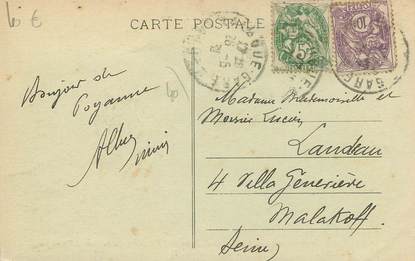 10 €
CARTE POSTALE
5
10
GARE
Bonjour de
Poyanne
Madame Mademoiselle et
Monsieur Lucien
Landeau
4 Villa Geneviève
Malakoff
Seine